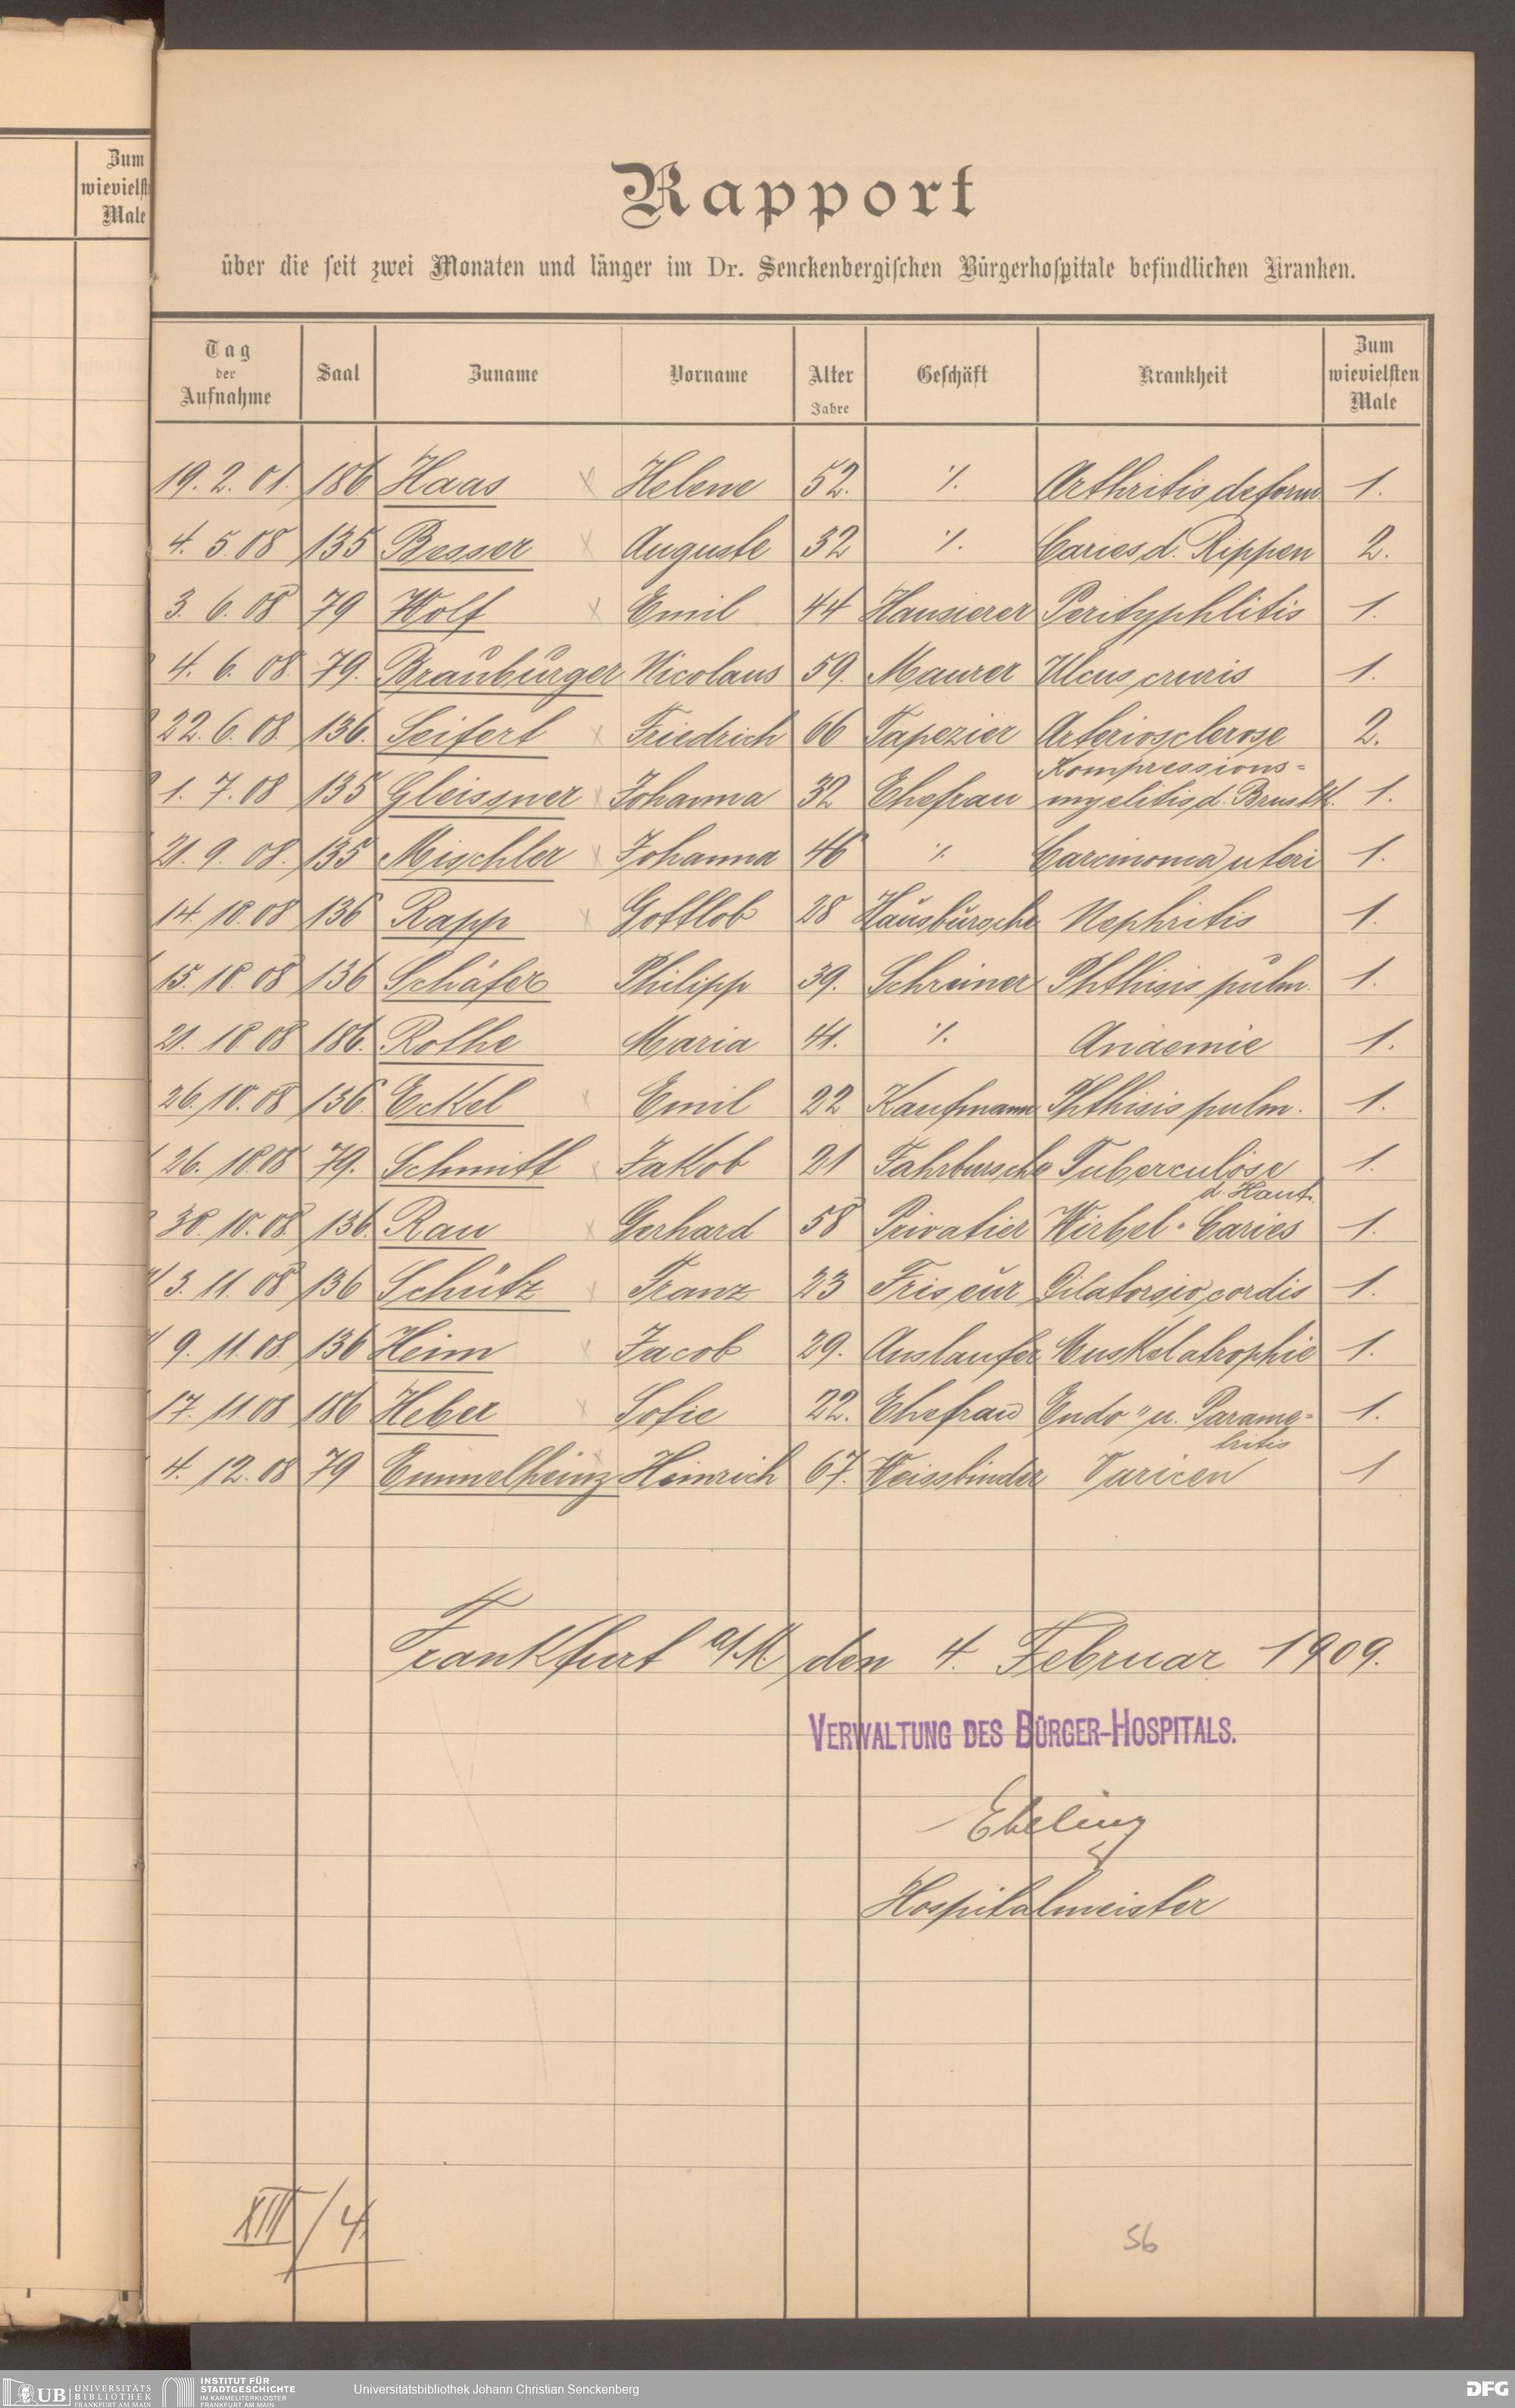 Zum
wievielst
Male
Rapport
über die seit zwei Monaten und länger im Dr. Senckenbergischen Bürgerhospitale befindlichen Kranken.
Tag der Aufnahme Saal Zuname Vorname Alter Jahre Geschäft Krankheit Zum wievielsten Male
19. 2. 01. 186 Haas x Helene 52. ·/. Arthritis deform. 1.
4. 5. 08 135 Besser x Auguste 32 ·/. Caries d. Rippen 2.
3. 6. 08 79 Wolf x Emil 44 Hausierer Perityphlitis 1.
4. 6. 08. 79. Brauburger Nicolaus 59. Maurer Ulcus cruris 1.
22. 6. 08. 136. Seifert x Friedrich 66 Tapezier Arteriosclerose 2.
Kompressions-
1. 7. 08 135 Gleissner x Johanna 32 Ehefrau myelitis d. Brustk. 1.
21. 9. 08. 135 Mischler x Johanna 46 ·/. Carcinoma uteri 1.
14. 10. 08 136 Rapp x Gottlob 28 Hausbursche Nephritis 1.
15. 10. 08 136 Schäfer Philipp 39. Schreiner Phthisis pulm. 1.
21. 10 08 186. Rothe Maria 41. ·/. Anaemie 1.
26. 10. 08 136. Eckel x Emil 22 Kaufmann Phthisis pulm. 1.
26. 10.08 79. Schmitt x Jakob 21 Fahrbursche Tuberculose 1.
d. Haut.
30. 10. 08. 136. Rau x Gerhard 58 Privatier Wirbel-Caries 1.
3. 11. 08 136 Schütz x Franz 23 Friseur cordis 1.
9. 11. 08. 136 Heim x Jacob 29. Auslaufer Muskelatrophie 1.
17. 11. 08 186 Heber x Sofie 22. Ehefrau Endo " u. Parame- 1.
tritis
4. 12. 08 79 Emmelheinz x Heinrich 67. Weissbinder Varicen 1
Frankfurt a/M den 4. Februar 1909.
VERWALTUNG DES BÜRGER-HOSPITALS.
Ebeling
Hospitalmeister
XIII/4
56
UB UNIVERSITÄTS BIBLIOTHEK FRANKFURT AM MAIN
INSTITUT FÜR STADTGESCHICHTE IM KARMELITERKLOSTER FRANKFURT AM MAIN
Universitätsbibliothek Johann Christian Senckenberg
DFG